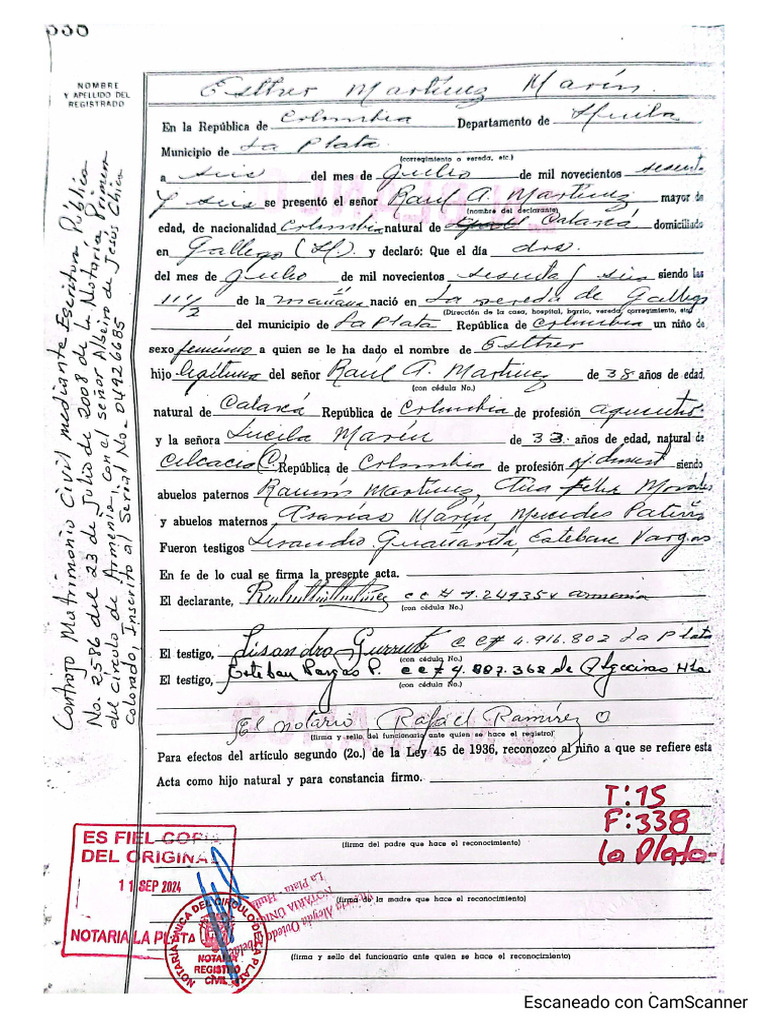 338
NOMBRE
Y APELLIDO DEL
REGISTRADO
Esther Martínez Marín.
En la República de Colombia Departamento de Huila
Municipio de La Plata
(corregimiento o vereda, etc.)
a seis del mes de Julio de mil novecientos sesenta
y seis se presentó el señor Raul A. Martinez mayor de
(nombre del declarante)
edad, de nacionalidad Colombia natural de Calarcá domiciliado
en Gallego (H). y declaró: Que el día dos.
del mes de Julio de mil novecientos sesenta y seis siendo las
11 1/2 de la mañana nació en La vereda de Gallego
(Dirección de la casa, hospital, barrio, vereda, corregimiento, etc.)
del municipio de La Plata República de Colombia un niño de
sexo femenino a quien se le ha dado el nombre de Esther
hijo legítimo del señor Raúl A. Martinez de 38 años de edad,
(con cédula No.)
natural de Calarcá República de Colombia de profesión agricultor
y la señora Lucila Marín de 33 años de edad, natural de
(C.) República de Colombia de profesión of. domest siendo
abuelos paternos Ramón Martinez, Félix Morales
y abuelos maternos Marín, Mercedes Patiño
Fueron testigos Lisandro Esteban Vargas
En fe de lo cual se firma la presente acta.
El declarante, Armenia
(con cédula No.)
El testigo, Lisandro c c # 4.916.802 La Plata
(con cédula No.)
El testigo, Esteban Vargas P. c c # 4.887.368 de Algeciras Hla
(con cédula No.)
El notario Rafael Ramírez O
(firma y sello del funcionario ante quien se hace el registro)
Para efectos del artículo segundo (2o.) de la Ley 45 de 1936, reconozco al niño a que se refiere esta
Acta como hijo natural y para constancia firmo.
T:15
F:338
la Plata-
(firma del padre que hace el reconocimiento)
(firma de la madre que hace el reconocimiento)
(firma y sello del funcionario ante quien se hace el reconocimiento)
Contrajo Matrimonio Civil mediante Escritura Pública
No. 2586 del 23 de Julio de 2008 de la Notaria Primera
del circulo de Armenia, con el señor Albeiro de Jesús Chica
Colorado, Inscrito al Serial No- 04926685
ES FIEL COPIA
DEL ORIGINAL
11 SEP 2024
NOTARIA LA PLATA
NOTARIA UNICA DEL CIRCULO DE LA PLATA
NOTARIA
REGISTRO
CIVIL
Oviedo
NOTARIA ÚNICA
La Plata - Huila
Escaneado con CamScanner